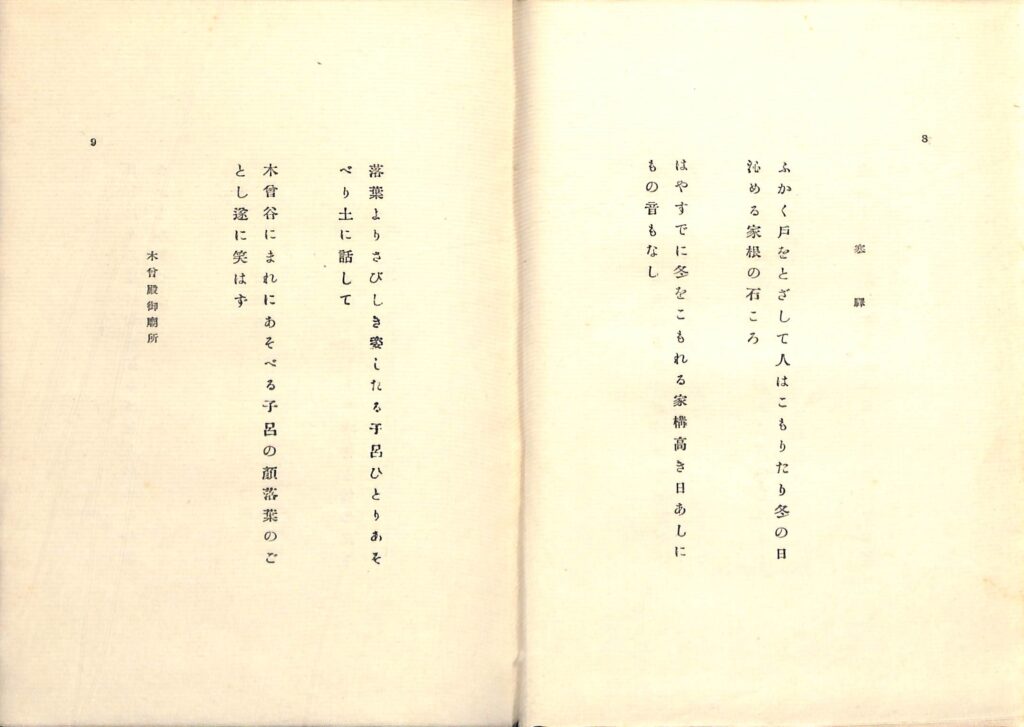 8
寒驛
ふかく戸をとざして人はこもりたり冬の日
沁める家根の石ころ
はやすでに冬をこもれる家構高き日あしに
もの音もなし
9
落葉よりさびしき姿したる子呂ひとりあそ
べり土に話して
木曾谷にまれにあそべる子呂の顏落葉のご
とし遂に笑はず
木曾殿御廟所